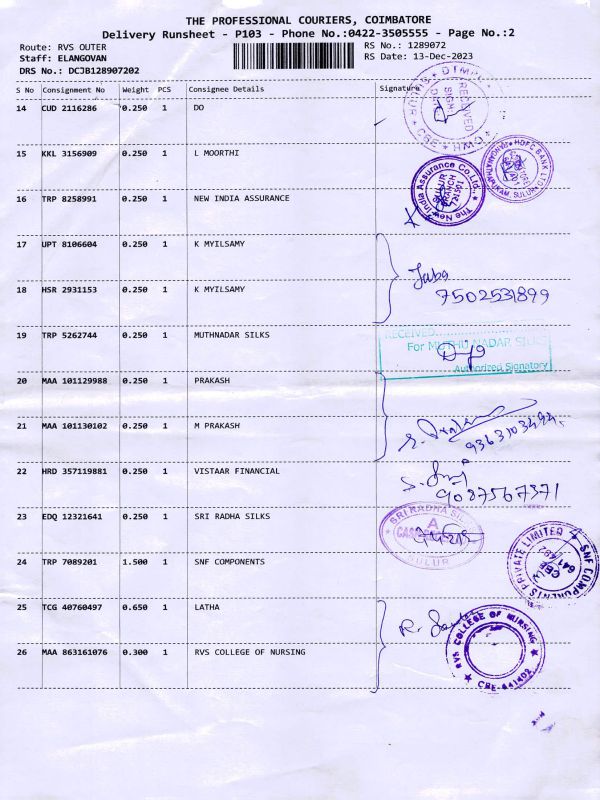 THE PROFESSIONAL COURIERS, COIMBATORE
Delivery Runsheet - P103 - Phone No.:0422-3505555 - Page No.:2
Route: RVS OUTER
RS No.: 1289072
Staff: ELANGOVAN
RS Date: 13-Dec-2023
DRS No.: DCJB128907202
S No Consignment No Weight PCS Consignee Details Signature
14 CUD 2116286 0.250 1 DO
RECEIVED
CBE
15 KKL 3156909 0.250 1 L MOORTHI
HDFC BANK LTD
16 TRP 8258991 0.250 1 NEW INDIA ASSURANCE
The New India Assurance Co.Ltd.,
SULUR BRANCH
17 UPT 8106604 0.250 1 K MYILSAMY
18 HSR 2931153 0.250 1 K MYILSAMY
7502531899
19 TRP 5262744 0.250 1 MUTHNADAR SILKS
RECEIVED
For MUTHU NADAR SILKS
Authorized Signatory
20 MAA 101129988 0.250 1 PRAKASH
21 MAA 101130102 0.250 1 M PRAKASH
22 HRD 357119881 0.250 1 VISTAAR FINANCIAL
9087567371
23 EDQ 12321641 0.250 1 SRI RADHA SILKS
SRI RADHA SILKS
SULUR
24 TRP 7089201 1.500 1 SNF COMPONENTS
SNF COMPONENTS PRIVATE LIMITED
25 TCG 40760497 0.650 1 LATHA
26 MAA 863161076 0.300 1 RVS COLLEGE OF NURSING
RVS COLLEGE OF NURSING
CBE-641402